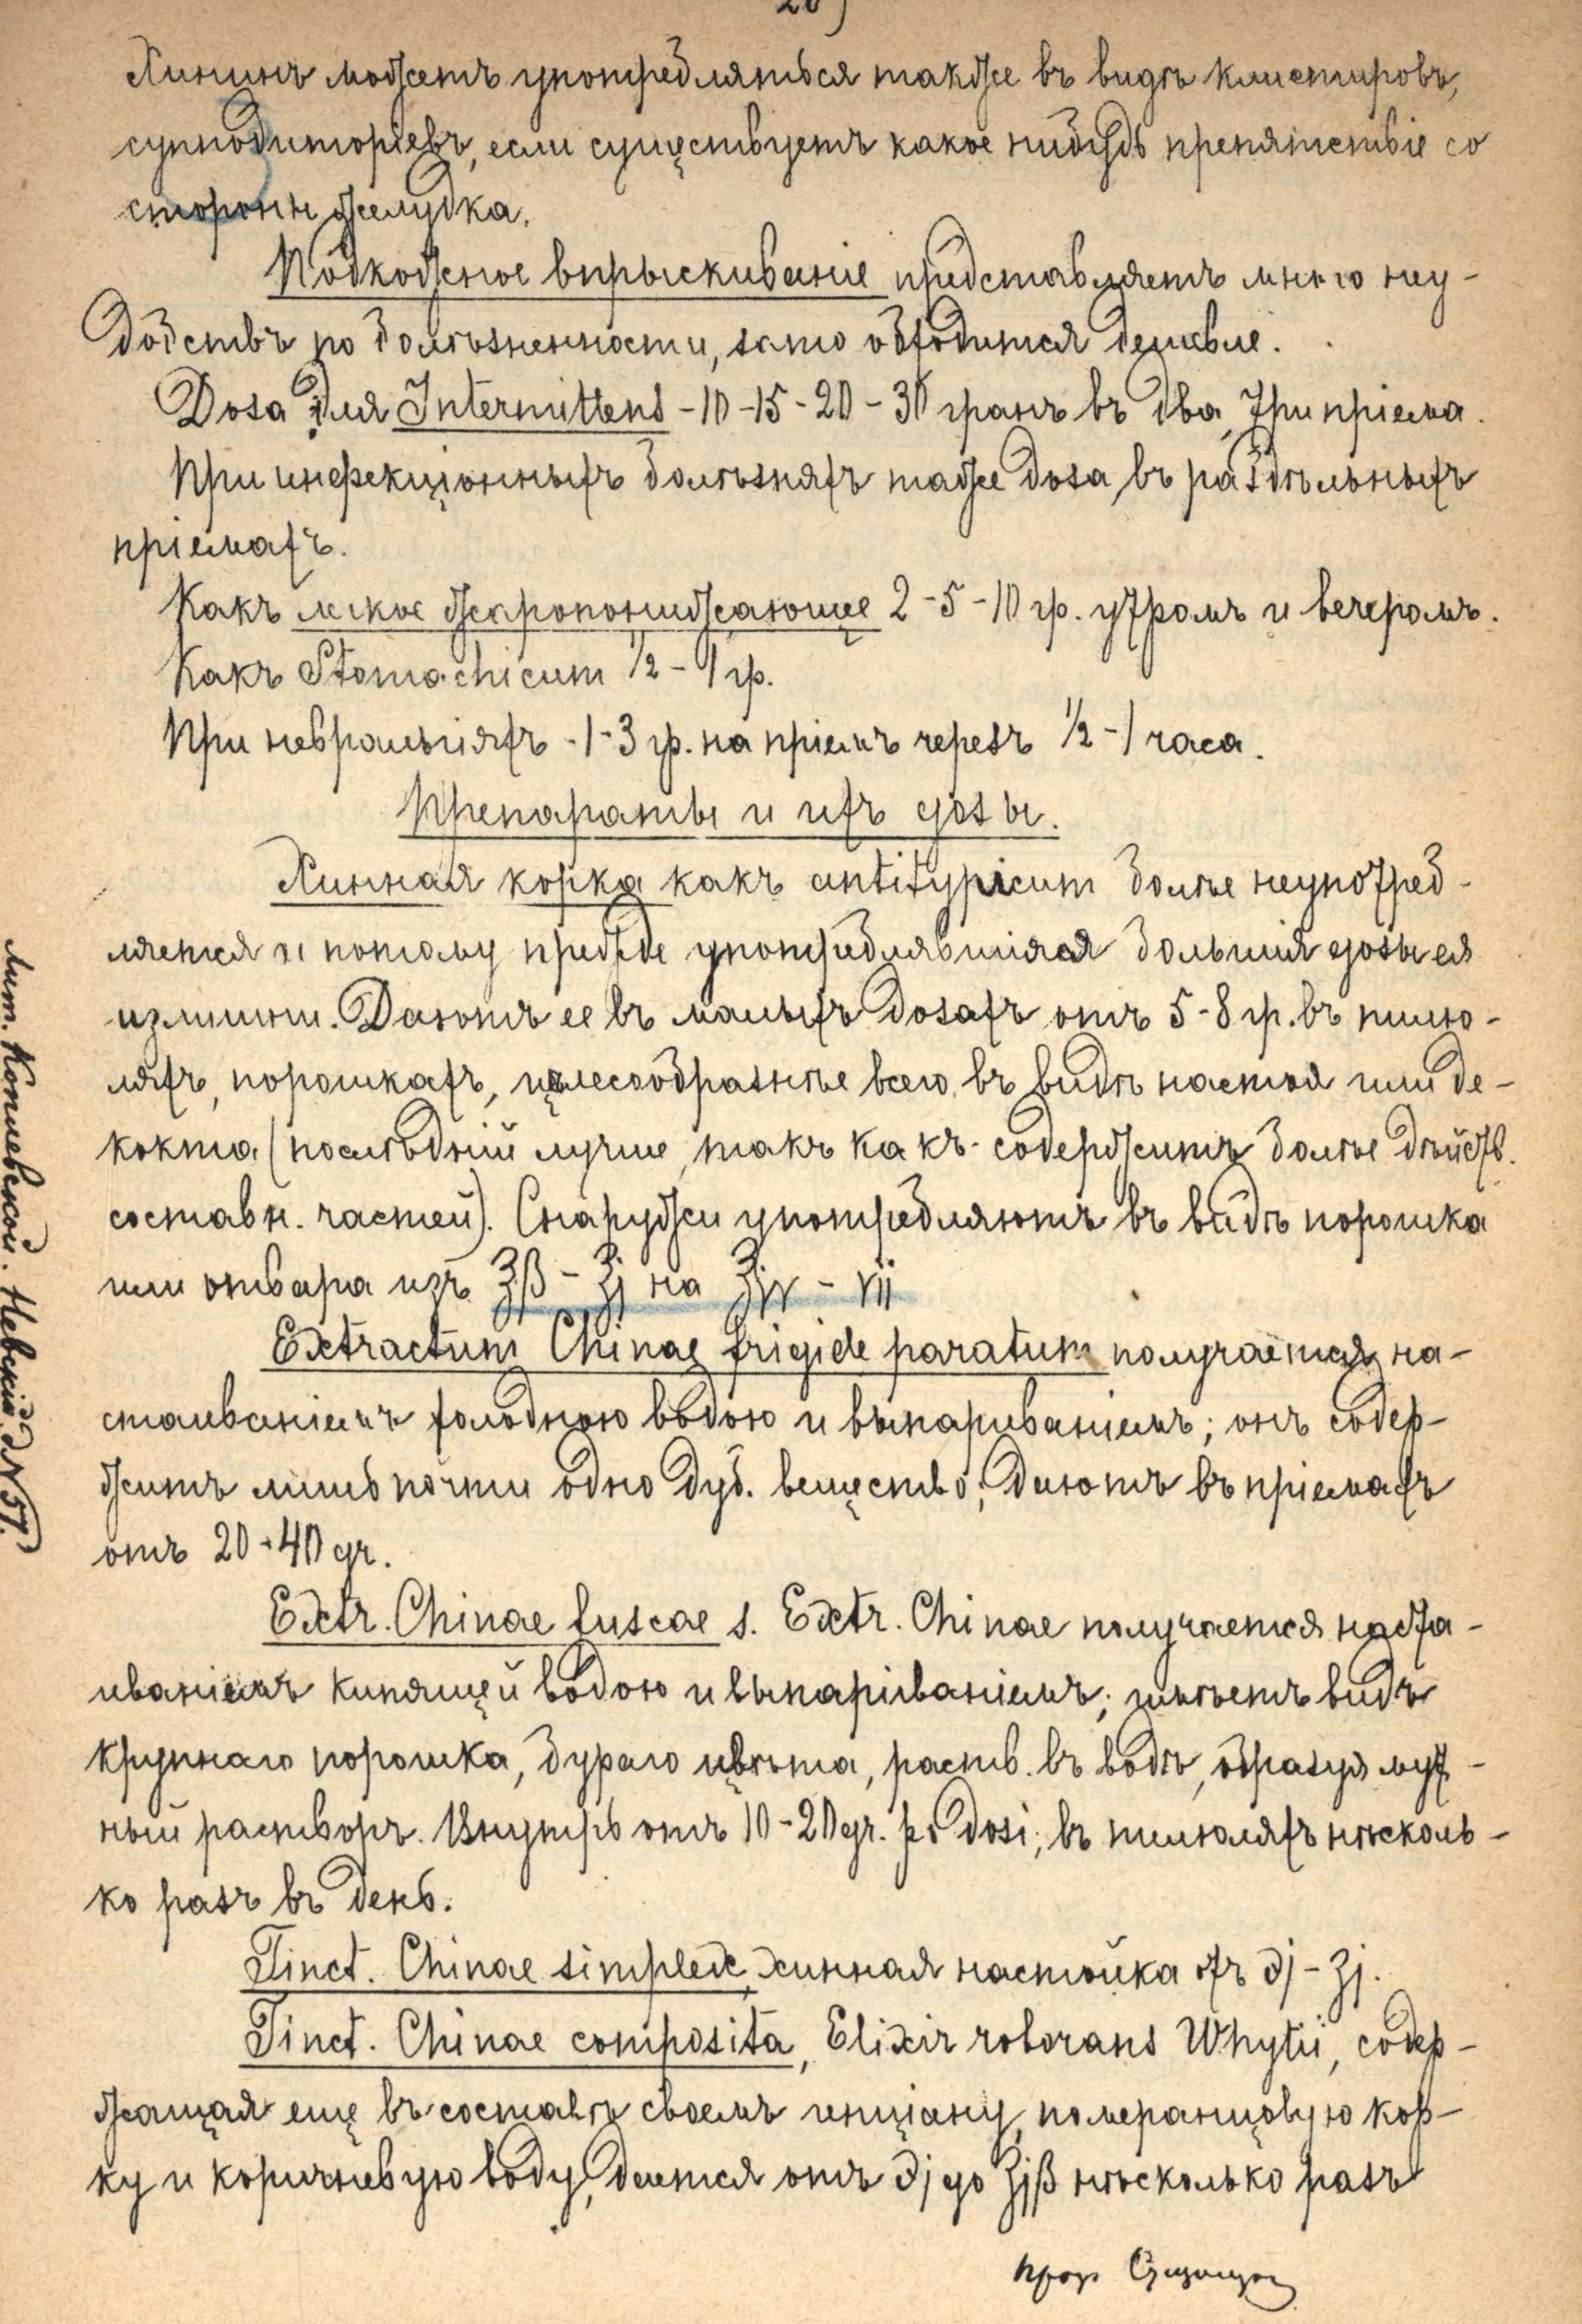 Хининъ можетъ употребляться также въ видѣ клистировъ,
суппозиторіевъ, если существуетъ какое нибудь препятствіе со
стороны желудка.
Подкожное впрыскиваніе представляетъ много неу-
добствъ по болѣзненности, зато обходится дешевле.
Doзa для Intermittens - 10 - 15 - 20 - 30 гранъ въ два, три пріема.
При инфекціонныхъ болѣзняхъ таже doза, въ раздѣльныхъ
пріемахъ.
Какъ легкое жаропонижающее 2 - 5 - 10 гр. утромъ и вечеромъ.
Какъ Stomachicum 1/2 - 1 гр.
При невральгіяхъ - 1 - 3 гр. на пріемъ черезъ 1/2 - 1 часа.
Препараты и ихъ дозы.
Хинная корка какъ antitypicum болѣе неупотреб-
ляется и потому прежде употреблявшіяся большія дозы ея
излишни. Даютъ ее въ малыхъ дозахъ отъ 5 - 8 гр. въ пилю-
ляхъ, порошкахъ, цѣлесообразнѣе всего въ видѣ настоя или де-
кокта (послѣдній лучше, такъ какъ содержитъ болѣе дѣйств.
составн. частей). Снаружи употребляютъ въ видѣ порошка
или отвара изъ ℥β - ℥j на ℥jv - vii
Extractum Chinae frigide paratum получается на-
стаиваніемъ холодною водою и выпариваніемъ; онъ содер-
житъ лишь почти одно дуб. вещество; даютъ въ пріемахъ
отъ 20 - 40 gr.
Extr. Chinae fuscae s. Extr. Chinae получается наста-
иваніемъ кипящей водою и выпариваніемъ; имѣетъ видъ
крупнаго порошка, бураго цвѣта, раств. въ водѣ, образуя мут-
ный растворъ. Внутрь отъ 10 - 20 gr. pro dosi; въ пилюляхъ нѣсколь-
ко разъ въ день.
Tinct. Chinae simplex, хинная настойка отъ ℈j - ʒj.
Tinct. Chinae composita, Elixir roborans Whytii, содер-
жащая еще въ составѣ своемъ генціану, померанцовую кор-
ку и коричневую воду, дается отъ ℈j до ʒjβ нѣсколько разъ
Проф.
Лит. Коплевской. Невскій д №57.